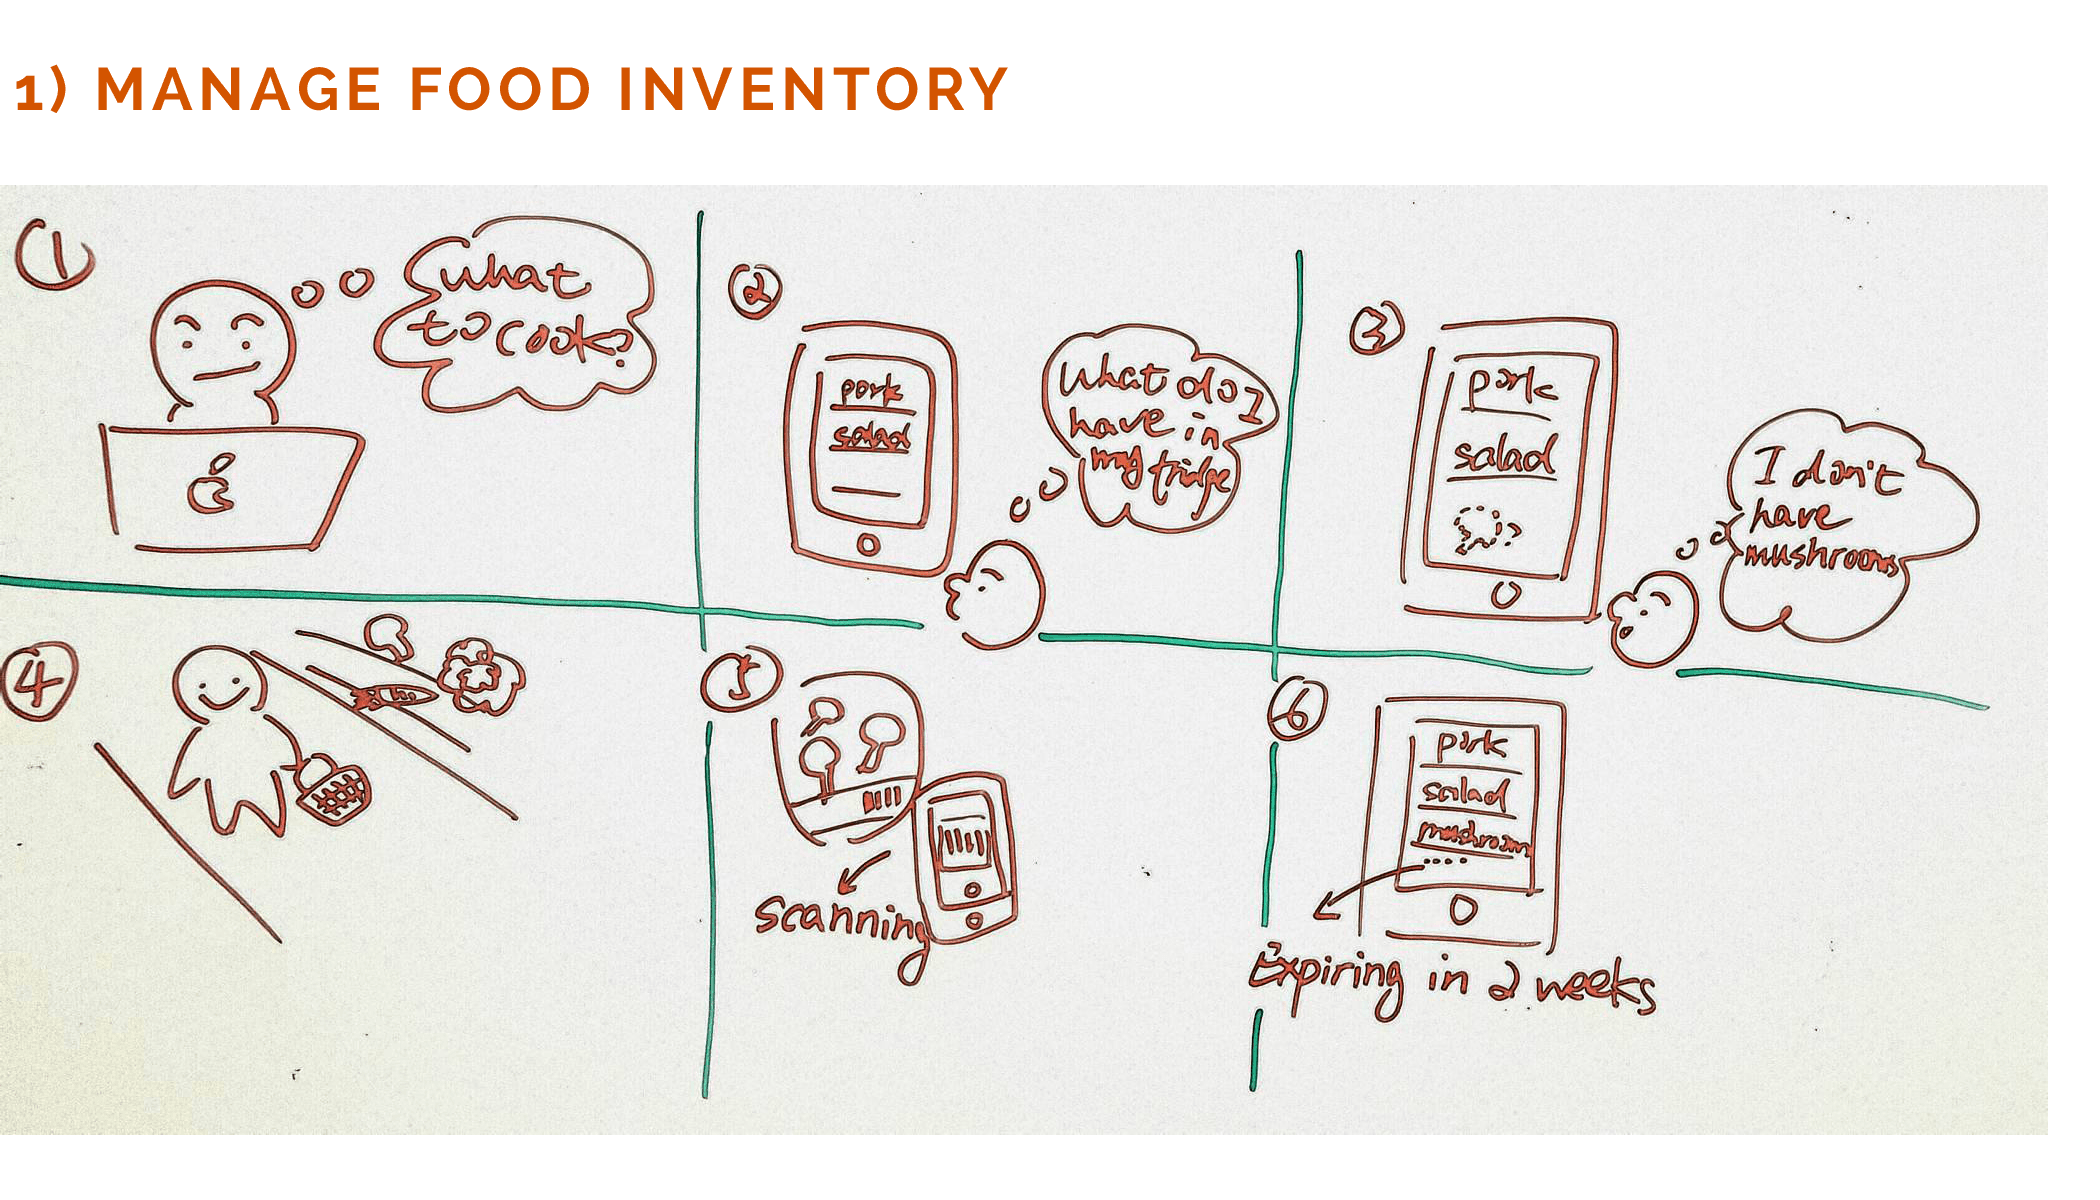 1) MANAGE FOOD INVENTORY
1
what
to cook?
2
pork
salad
What do I
have in
my fridge
3
pork
salad
?
I don't
have
mushrooms
4
5
scanning
6
pork
salad
mushroom
....
Expiring in 2 weeks